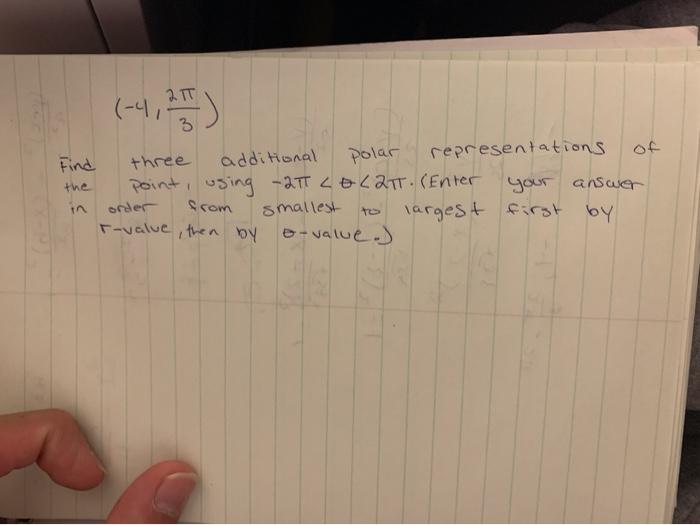 (-4, 2π/3)
Find three additional polar representations of
the point, using -2π < θ < 2π. (Enter your answer
in order from smallest to largest first by
r-value, then by θ-value.)